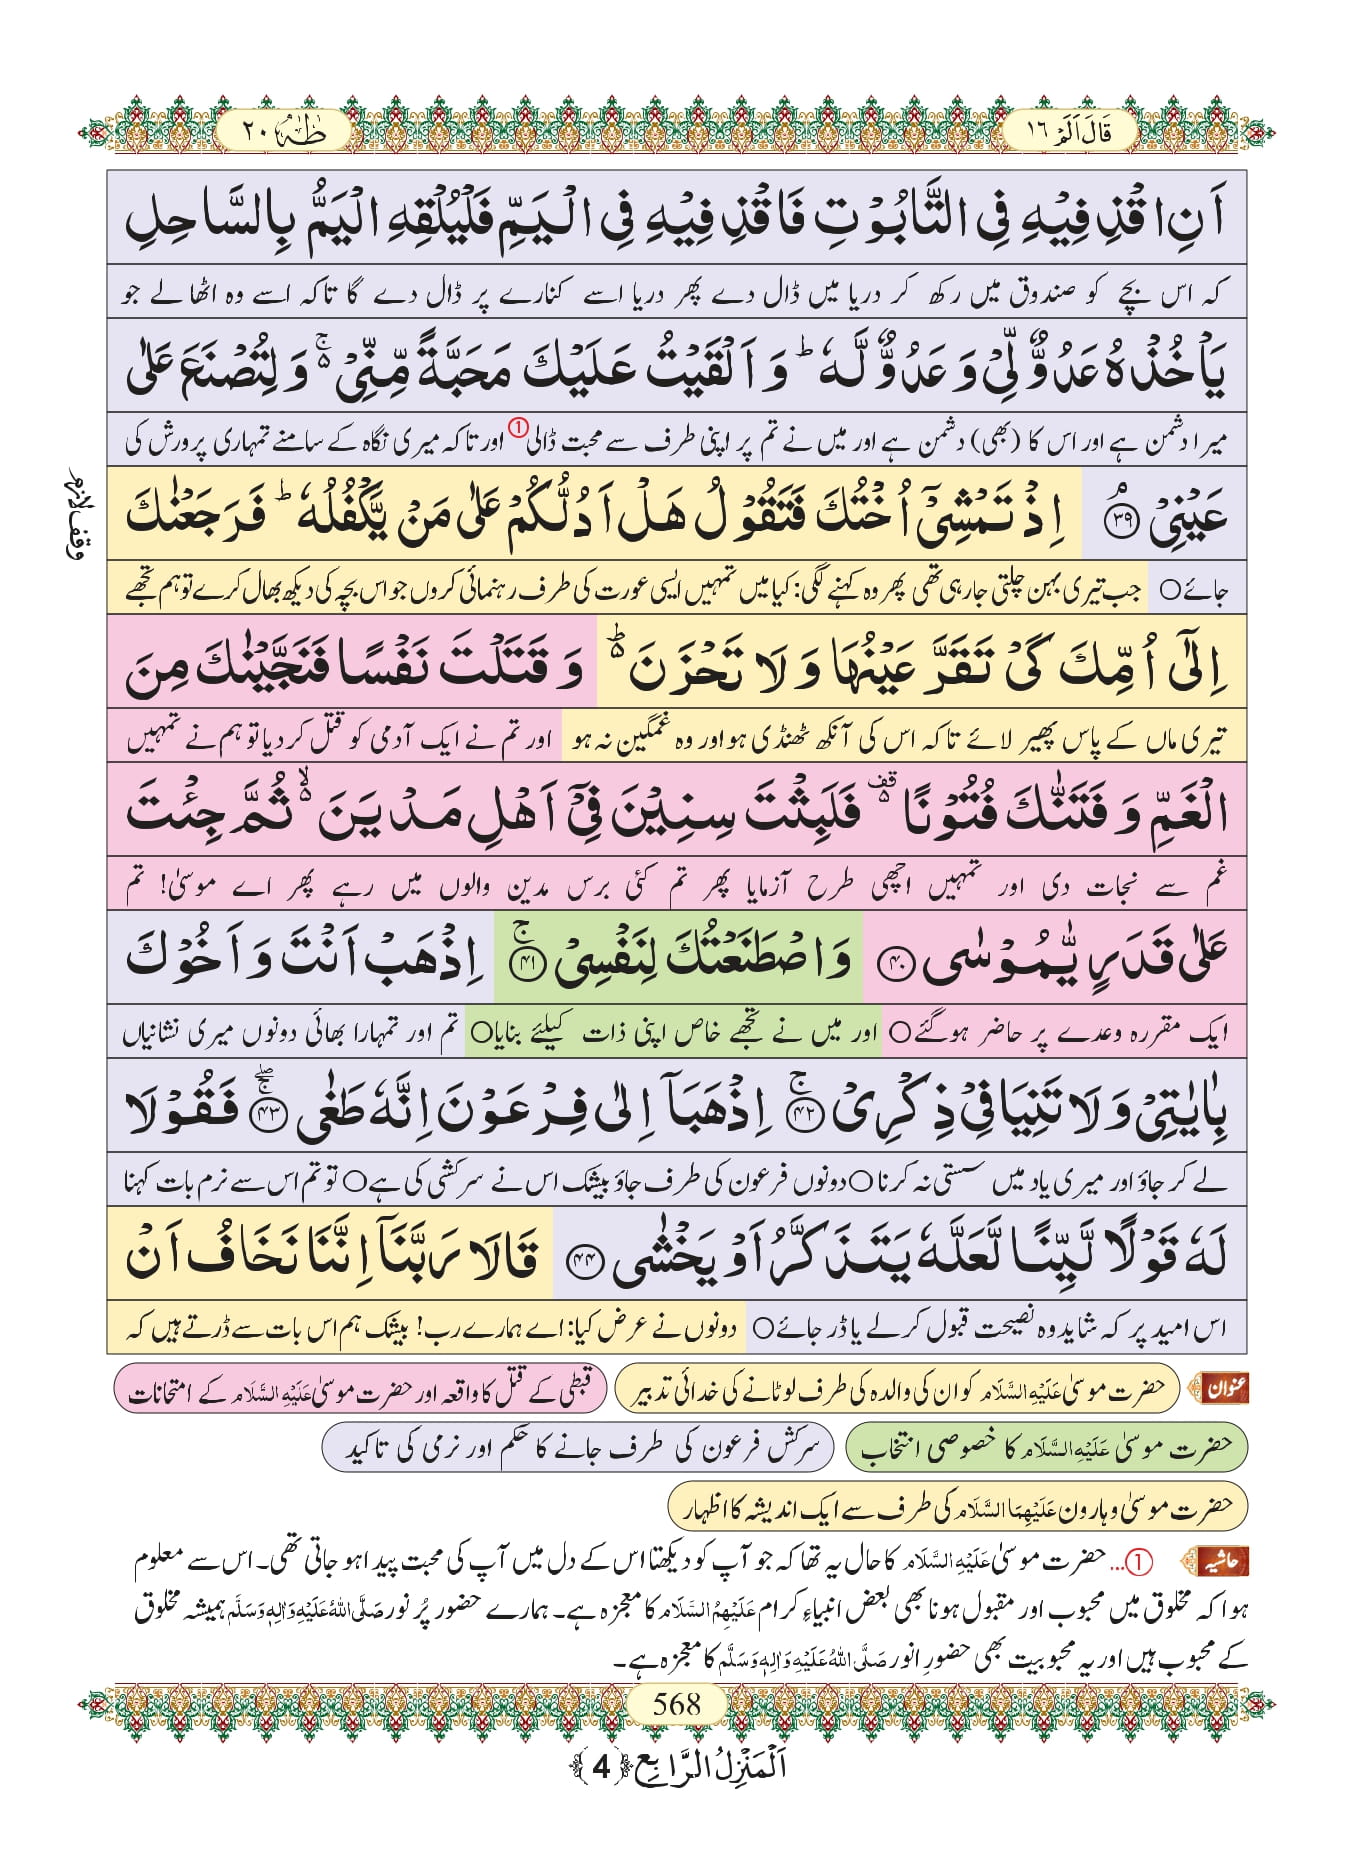 قَالَ اَلَمْ ١٦
طٰهٰ ٢٠
اَنِ اقْذِفِیْهِ فِی التَّابُوْتِ فَاقْذِفِیْهِ فِی الْیَمِّ فَلْیُلْقِهِ الْیَمُّ بِالسَّاحِلِ
کہ اس بچے کو صندوق میں رکھ کر دریا میں ڈال دے پھر دریا اسے کنارے پر ڈال دے گا تاکہ اسے وہ اٹھا لے جو
یَاْخُذْهُ عَدُوٌّ لِّیْ وَ عَدُوٌّ لَّهٗ ؕ وَ اَلْقَیْتُ عَلَیْكَ مَحَبَّةً مِّنِّیْ ۚ۬ وَ لِتُصْنَعَ عَلٰى
میرا دشمن ہے اور اس کا (بھی) دشمن ہے اور میں نے تم پر اپنی طرف سے محبت ڈالی① اور تاکہ میری نگاہ کے سامنے تمہاری پرورش کی
عَیْنِیْ ۘ﴿۳۹﴾ اِذْ تَمْشِیْۤ اُخْتُكَ فَتَقُوْلُ هَلْ اَدُلُّكُمْ عَلٰى مَنْ یَّكْفُلُهٗ ؕ فَرَجَعْنٰكَ
وقف لازم
جائے○ جب تیری بہن چلتی جارہی تھی پھر وہ کہنے لگی: کیا میں تمہیں ایسی عورت کی طرف رہنمائی کروں جو اس بچہ کی دیکھ بھال کرے تو ہم تجھے
اِلٰۤى اُمِّكَ كَیْ تَقَرَّ عَیْنُهَا وَ لَا تَحْزَنَ ۬ؕ وَ قَتَلْتَ نَفْسًا فَنَجَّیْنٰكَ مِنَ
تیری ماں کے پاس پھیر لائے تاکہ اس کی آنکھ ٹھنڈی ہو اور وہ غمگین نہ ہو اور تم نے ایک آدمی کو قتل کردیا تو ہم نے تمہیں
الْغَمِّ وَ فَتَنّٰكَ فُتُوْنًا ۫۬ فَلَبِثْتَ سِنِیْنَ فِیْۤ اَهْلِ مَدْیَنَ ۙ۬ ثُمَّ جِئْتَ
غم سے نجات دی اور تمہیں اچھی طرح آزمایا پھر تم کئی برس مدین والوں میں رہے پھر اے موسیٰ! تم
عَلٰى قَدَرٍ یّٰمُوْسٰى ﴿۴۰﴾ وَ اصْطَنَعْتُكَ لِنَفْسِیْ ۚ﴿۴۱﴾ اِذْهَبْ اَنْتَ وَ اَخُوْكَ
ایک مقررہ وعدے پر حاضر ہوگئے○ اور میں نے تجھے خاص اپنی ذات کیلئے بنایا○ تم اور تمہارا بھائی دونوں میری نشانیاں
بِاٰیٰتِیْ وَ لَا تَنِیَا فِیْ ذِكْرِیْ ۚ﴿۴۲﴾ اِذْهَبَاۤ اِلٰى فِرْعَوْنَ اِنَّهٗ طَغٰى ۚۖ﴿۴۳﴾ فَقُوْلَا
لے کر جاؤ اور میری یاد میں سستی نہ کرنا○ دونوں فرعون کی طرف جاؤ بیشک اس نے سرکشی کی ہے○ تو تم اس سے نرم بات کہنا
لَهٗ قَوْلًا لَّیِّنًا لَّعَلَّهٗ یَتَذَكَّرُ اَوْ یَخْشٰى ﴿۴۴﴾ قَالَا رَبَّنَاۤ اِنَّنَا نَخَافُ اَنْ
اس امید پر کہ شاید وہ نصیحت قبول کرلے یا ڈر جائے○ دونوں نے عرض کیا: اے ہمارے رب! بیشک ہم اس بات سے ڈرتے ہیں کہ
عنوان حضرت موسیٰ عَلَیْهِ السَّلَام کو ان کی والدہ کی طرف لوٹانے کی خدائی تدبیر قبطی کے قتل کا واقعہ اور حضرت موسیٰ عَلَیْهِ السَّلَام کے امتحانات
حضرت موسیٰ عَلَیْهِ السَّلَام کا خصوصی انتخاب سرکش فرعون کی طرف جانے کا حکم اور نرمی کی تاکید
حضرت موسیٰ و ہارون عَلَیْهِمَا السَّلَام کی طرف سے ایک اندیشہ کا اظہار
حاشیہ ①... حضرت موسیٰ عَلَیْهِ السَّلَام کا حال یہ تھا کہ جو آپ کو دیکھتا اس کے دل میں آپ کی محبت پیدا ہوجاتی تھی۔ اس سے معلوم
ہوا کہ مخلوق میں محبوب اور مقبول ہونا بھی بعض انبیاءِ کرام عَلَیْهِمُ السَّلَام کا معجزہ ہے۔ ہمارے حضور پُر نور صَلَّی اللهُ عَلَیْهِ وَاٰلِهٖ وَسَلَّم ہمیشہ مخلوق
کے محبوب ہیں اور یہ محبوبیت بھی حضورِ انور صَلَّی اللهُ عَلَیْهِ وَاٰلِهٖ وَسَلَّم کا معجزہ ہے۔
568
اَلْمَنْزِلُ الرَّابِع ﴿4﴾